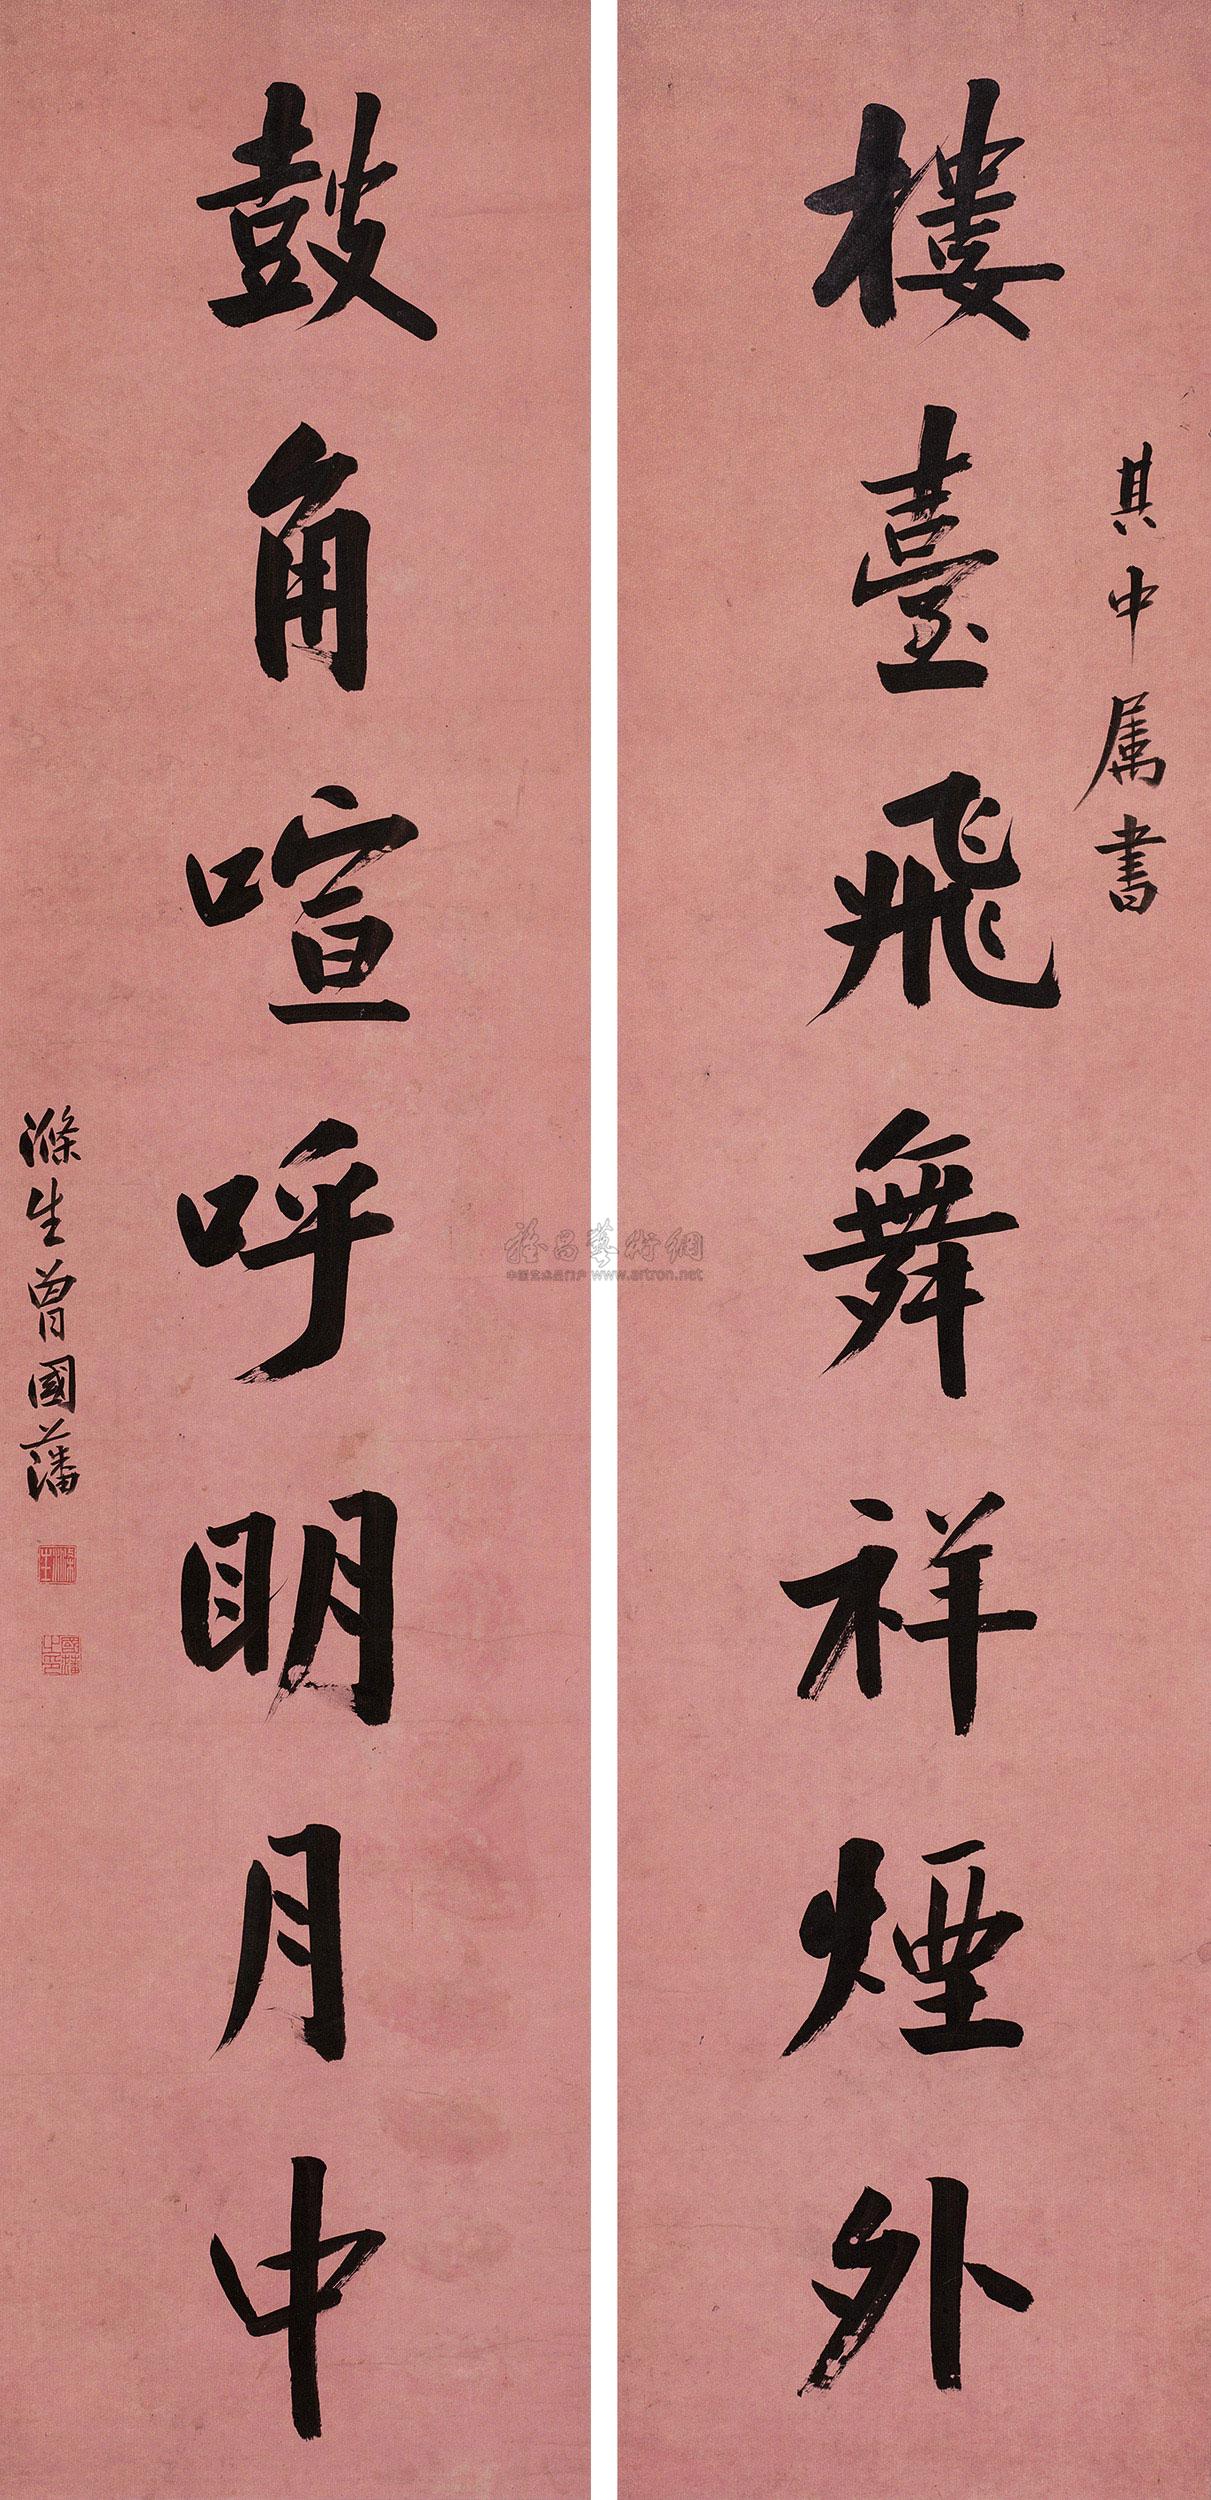 其中属書
樓臺飛舞祥煙外
鼓角喧呼明月中
滌生曾國藩
滌生
國藩之印
雅昌藝術網
中国艺术品门户 www.artron.net